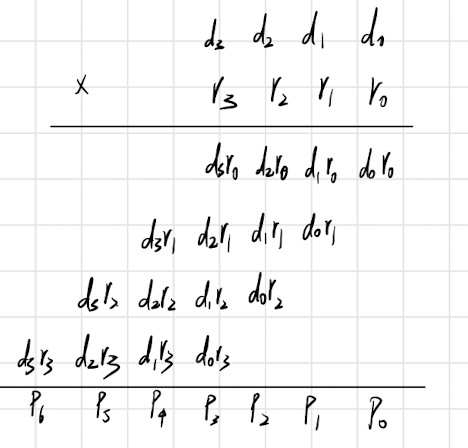 d₃ d₂ d₁ d₀
× r₃ r₂ r₁ r₀
d₃r₀ d₂r₀ d₁r₀ d₀r₀
d₃r₁ d₂r₁ d₁r₁ d₀r₁
d₃r₂ d₂r₂ d₁r₂ d₀r₂
d₃r₃ d₂r₃ d₁r₃ d₀r₃
P₆ P₅ P₄ P₃ P₂ P₁ P₀